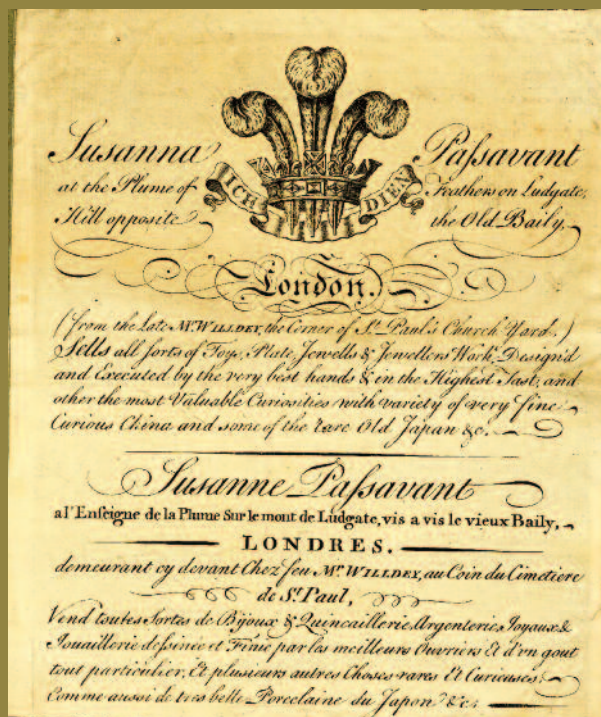 Susanna Paſsavant
at the Plume of Feathers on Ludgate,
Hill opposite the Old Baily,
ICH DIEN
London.
(from the Late Mr. WILLDEY, the Corner of St. Paul's Church Yard.)
Sells all sorts of Toys, Plate, Jewells & Jewellers Work, Design'd
and Executed by the very best hands & in the Highest Tast, and
other the most Valuable Curiosities with variety of very fine
Curious China and some of the rare Old Japan &c.
Susanne Paſsavant
a l'Enſeigne de la Plume Sur le mont de Ludgate, vis a vis le vieux Baily,
LONDRES.
demeurant cy devant Chez feu Mr. WILLDEY, au Coin du Cimetiere
de St. Paul,
Vend toutes Sortes de Bijoux & Quincaillerie, Argenterie, Joyaux &
Jouaillerie deſsinée et Finie par les meilleurs Ouvriers Et d'un gout
tout particulier, Et plusieurs autres Choses rares Et Curieuses.
Comme aussi de tres belle Porcelaine du Japon &c.